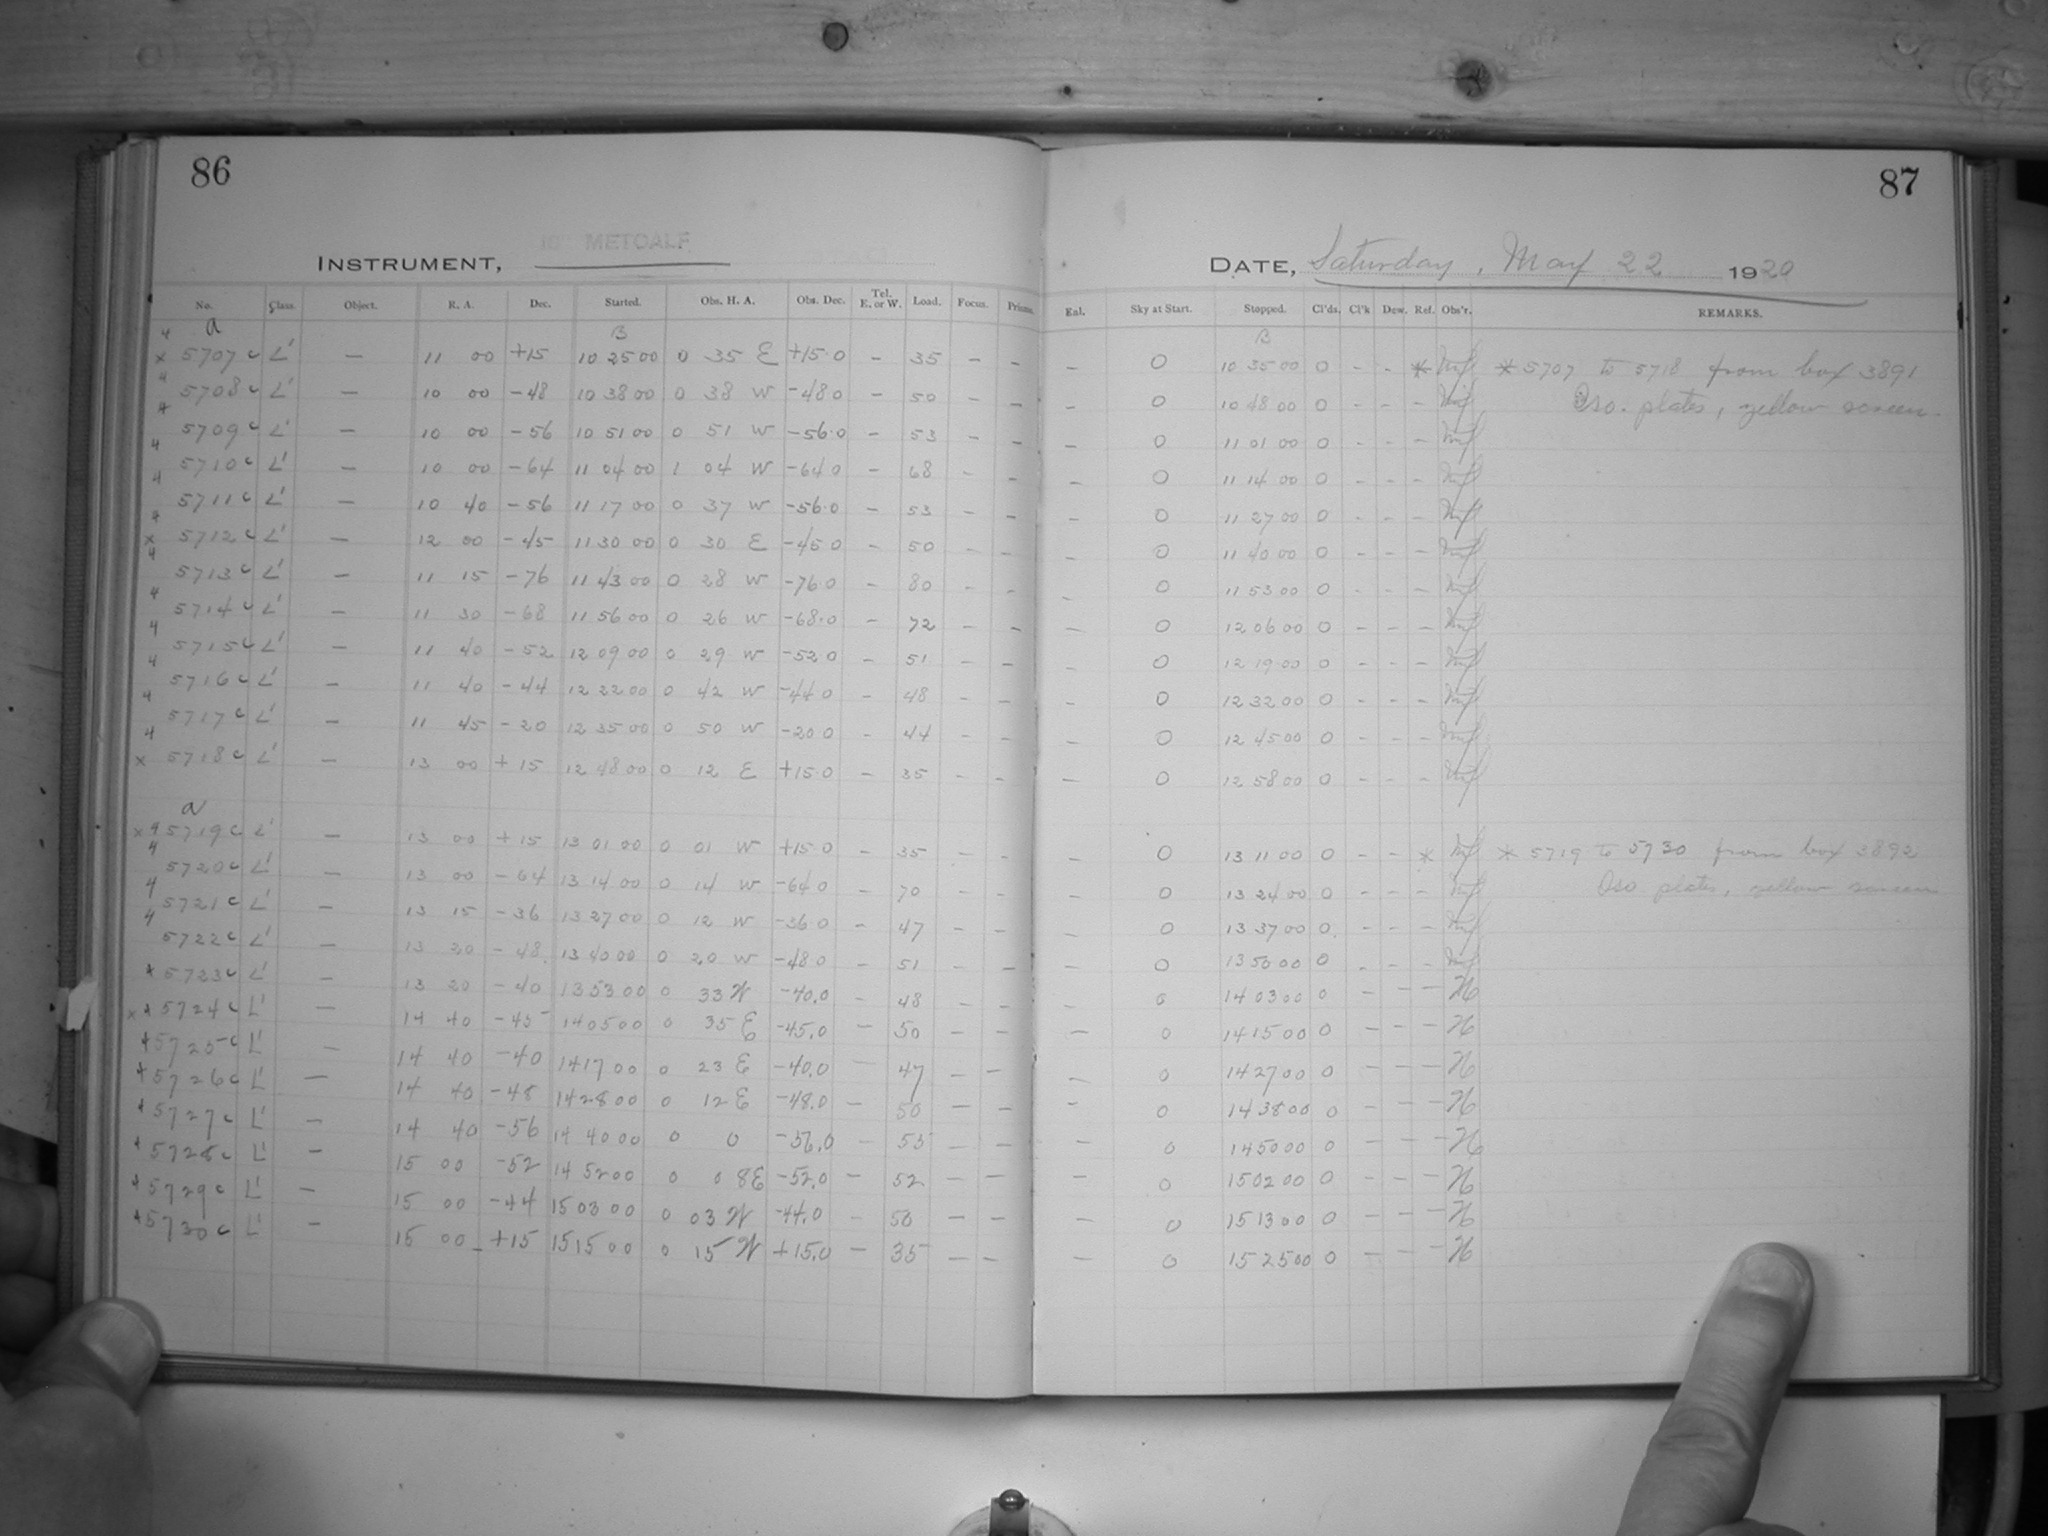 86
87
INSTRUMENT, 10" METCALF
DATE, Saturday, May 22 1920
No. Class. Object. R. A. Dec. Started. Obs. H. A. Obs. Dec. Tel. E. or W. Load. Focus. Prisms. Eal. Sky at Start. Stopped. Cl'ds. Cl'k Dew. Ref. Obs'r. REMARKS.
a B B
5707 c L' — 11 00 +15 10 25 00 0 35 E +15.0 – 35 – – – 0 10 35 00 0 - - * * 5707 to 5718 from box 3891
5708 c L' — 10 00 -48 10 38 00 0 38 W -48 0 – 50 – – – 0 10 48 00 0 - - - Iso. plates, yellow screen.
5709 c L' — 10 00 -56 10 51 00 0 51 W -56.0 – 53 – – – 0 11 01 00 0 - - -
5710 c L' — 10 00 -64 11 04 00 1 04 W -64 0 – 68 – – – 0 11 14 00 0 - - -
5711 c L' — 10 40 -56 11 17 00 0 37 W -56.0 – 53 – – – 0 11 27 00 0 - - -
5712 c L' — 12 00 -45 11 30 00 0 30 E -45 0 – 50 – – – 0 11 40 00 0 - - -
5713 c L' — 11 15 -76 11 43 00 0 28 W -76.0 – 80 – – – 0 11 53 00 0 - - -
5714 c L' — 11 30 -68 11 56 00 0 26 W -68.0 – 72 – – – 0 12 06 00 0 - - -
5715 c L' — 11 40 -52 12 09 00 0 29 W -52 0 – 51 – – – 0 12 19 00 0 - - -
5716 c L' — 11 40 -44 12 22 00 0 42 W -44 0 – 48 – – – 0 12 32 00 0 - - -
5717 c L' — 11 45 -20 12 35 00 0 50 W -20 0 – 44 – – – 0 12 45 00 0 - - -
5718 c L' — 13 00 +15 12 48 00 0 12 E +15.0 – 35 – – – 0 12 58 00 0 - - -
a
5719 c L' — 13 00 +15 13 01 00 0 01 W +15 0 – 35 – – – 0 13 11 00 0 - - * * 5719 to 5730 from box 3892
5720 c L' — 13 00 -64 13 14 00 0 14 W -64 0 – 70 – – – 0 13 24 00 0 - - - Iso plates, yellow screen
5721 c L' — 13 15 -36 13 27 00 0 12 W -36 0 – 47 – – – 0 13 37 00 0 - - -
5722 c L' — 13 20 -48 13 40 00 0 20 W -48 0 – 51 – – – 0 13 50 00 0 - - -
5723 c L' — 13 20 -40 13 53 00 0 33 W -40.0 – 48 – – – 0 14 03 00 0 - - - H
5724 c L' — 14 40 -45 14 05 00 0 35 E -45.0 – 50 – – – 0 14 15 00 0 - - - H
5725 c L' — 14 40 -40 14 17 00 0 23 E -40.0 – 47 – – – 0 14 27 00 0 - - - H
5726 c L' — 14 40 -48 14 28 00 0 12 E -48.0 – 50 – – – 0 14 38 00 0 - - - H
5727 c L' — 14 40 -56 14 40 00 0 0 -56.0 – 55 – – – 0 14 50 00 0 - - - H
5728 c L' — 15 00 -52 14 52 00 0 0 8 E -52.0 – 52 – – – 0 15 02 00 0 - - - H
5729 c L' — 15 00 -44 15 03 00 0 03 W -44.0 – 50 – – – 0 15 13 00 0 - - - H
5730 c L' — 15 00 +15 15 15 00 0 15 W +15.0 – 35 – – – 0 15 25 00 0 - - - H